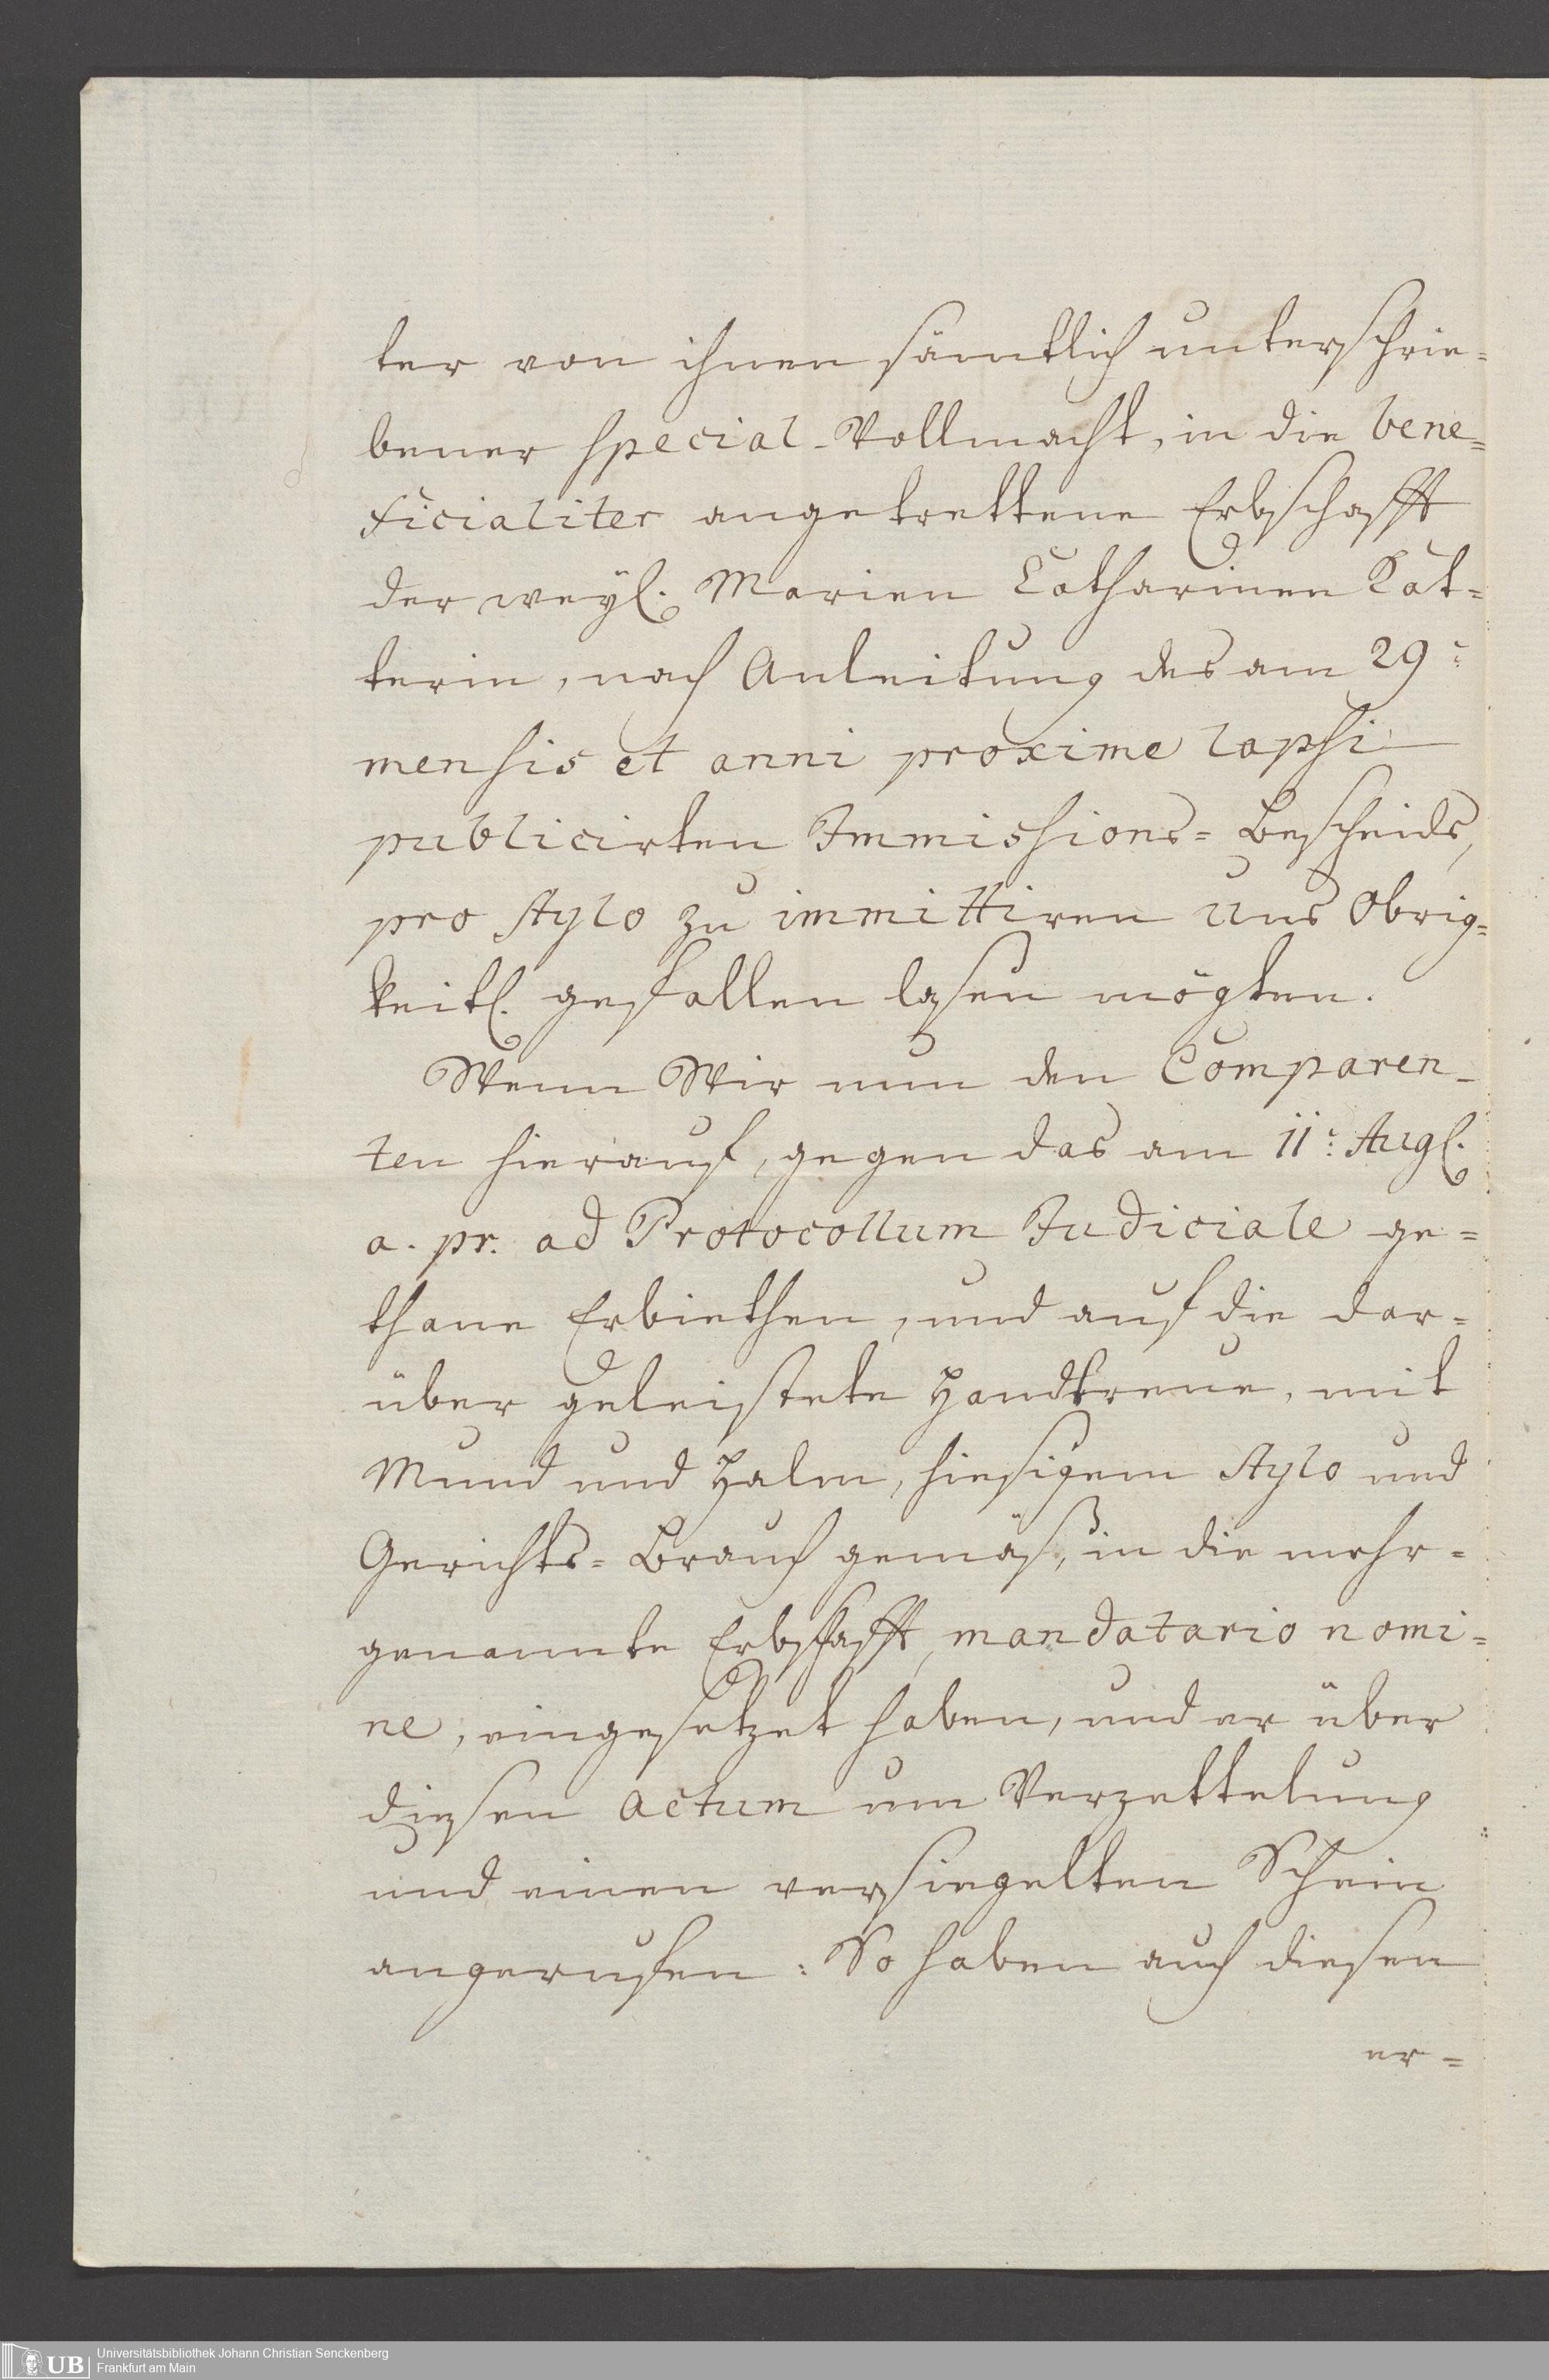 ter von ihnen sämtlich unterschrie=
bener special-Vollmacht, in die bene=
ficialiter angetrettene Erbschafft
der weyl. Marien Catharinen Kat=
terin, nach Anleitung des am 29:
mensis et anni proxime lapsi
publicirten Immissions= Bescheids,
pro stylo zu immittiren Uns Obrig=
keitl. gefallen lasen mögten.
Wenn Wir nun den Comparen-
ten hierauf, gegen das am 11: Aug.
a. pr. ad Protocollum Judiciale ge=
thane Erbiethen, und auf die dar=
über geleistete Handtreue, mit
Mund und Halm, hiesigem stylo und
Gerichts= Brauch gemäß, in die mehr=
genannte Erbschafft, mandatario nomi=
ne, eingesetzet haben, und er über
diesen actum um Verzettelung
und einen versiegelten Schein
angerufen: So haben auch diesen
er=
UB
Universitätsbibliothek Johann Christian Senckenberg
Frankfurt am Main